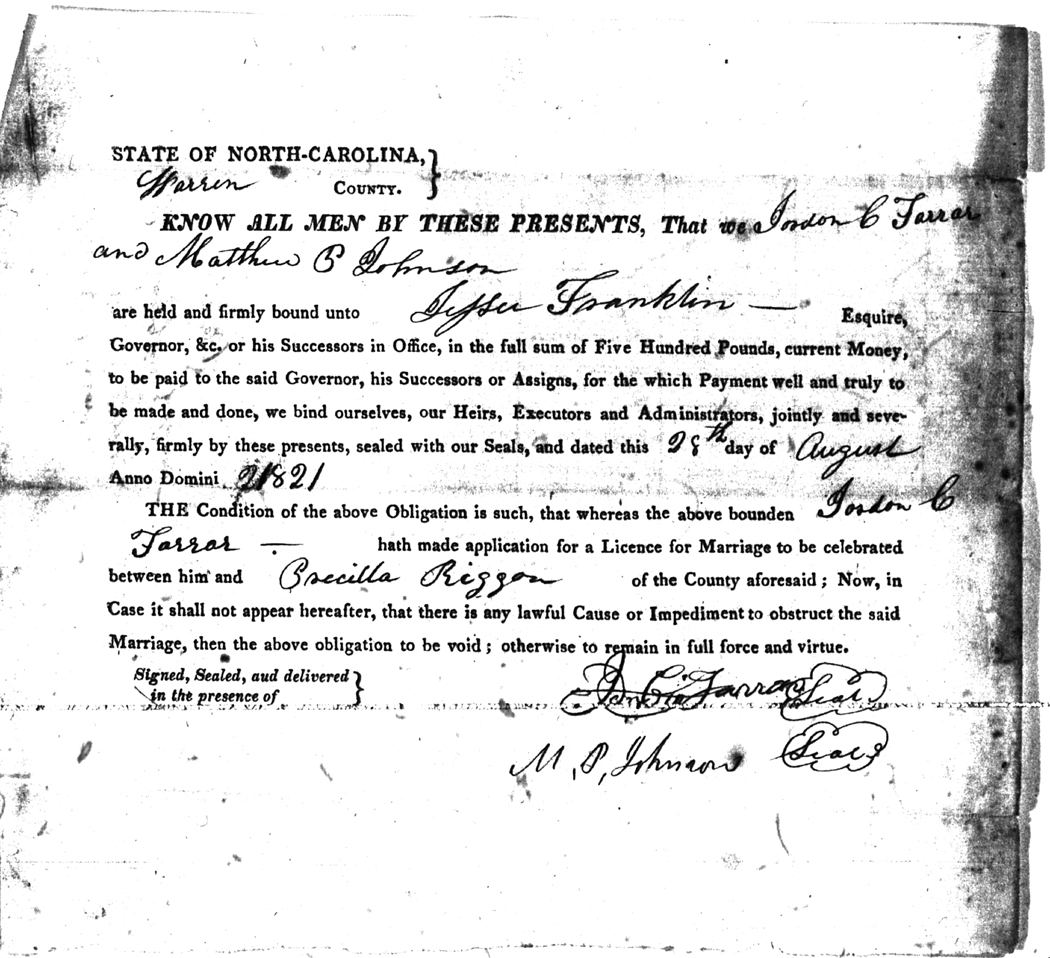 STATE OF NORTH-CAROLINA,
Warren COUNTY.
KNOW ALL MEN BY THESE PRESENTS, That we Jordon C Farrar
and Matthew P Johnson
are held and firmly bound unto Jesse Franklin — Esquire,
Governor, &c. or his Successors in Office, in the full sum of Five Hundred Pounds, current Money,
to be paid to the said Governor, his Successors or Assigns, for the which Payment well and truly to
be made and done, we bind ourselves, our Heirs, Executors and Administrators, jointly and seve-
rally, firmly by these presents, sealed with our Seals, and dated this 28th day of August
Anno Domini 1821
THE Condition of the above Obligation is such, that whereas the above bounden Jordon C
Farrar — hath made application for a Licence for Marriage to be celebrated
between him and Precilla Riggan of the County aforesaid; Now, in
Case it shall not appear hereafter, that there is any lawful Cause or Impediment to obstruct the said
Marriage, then the above obligation to be void; otherwise to remain in full force and virtue.
Signed, Sealed, aud delivered
in the presence of
C Farrar Seal
M. P. Johnson Seal